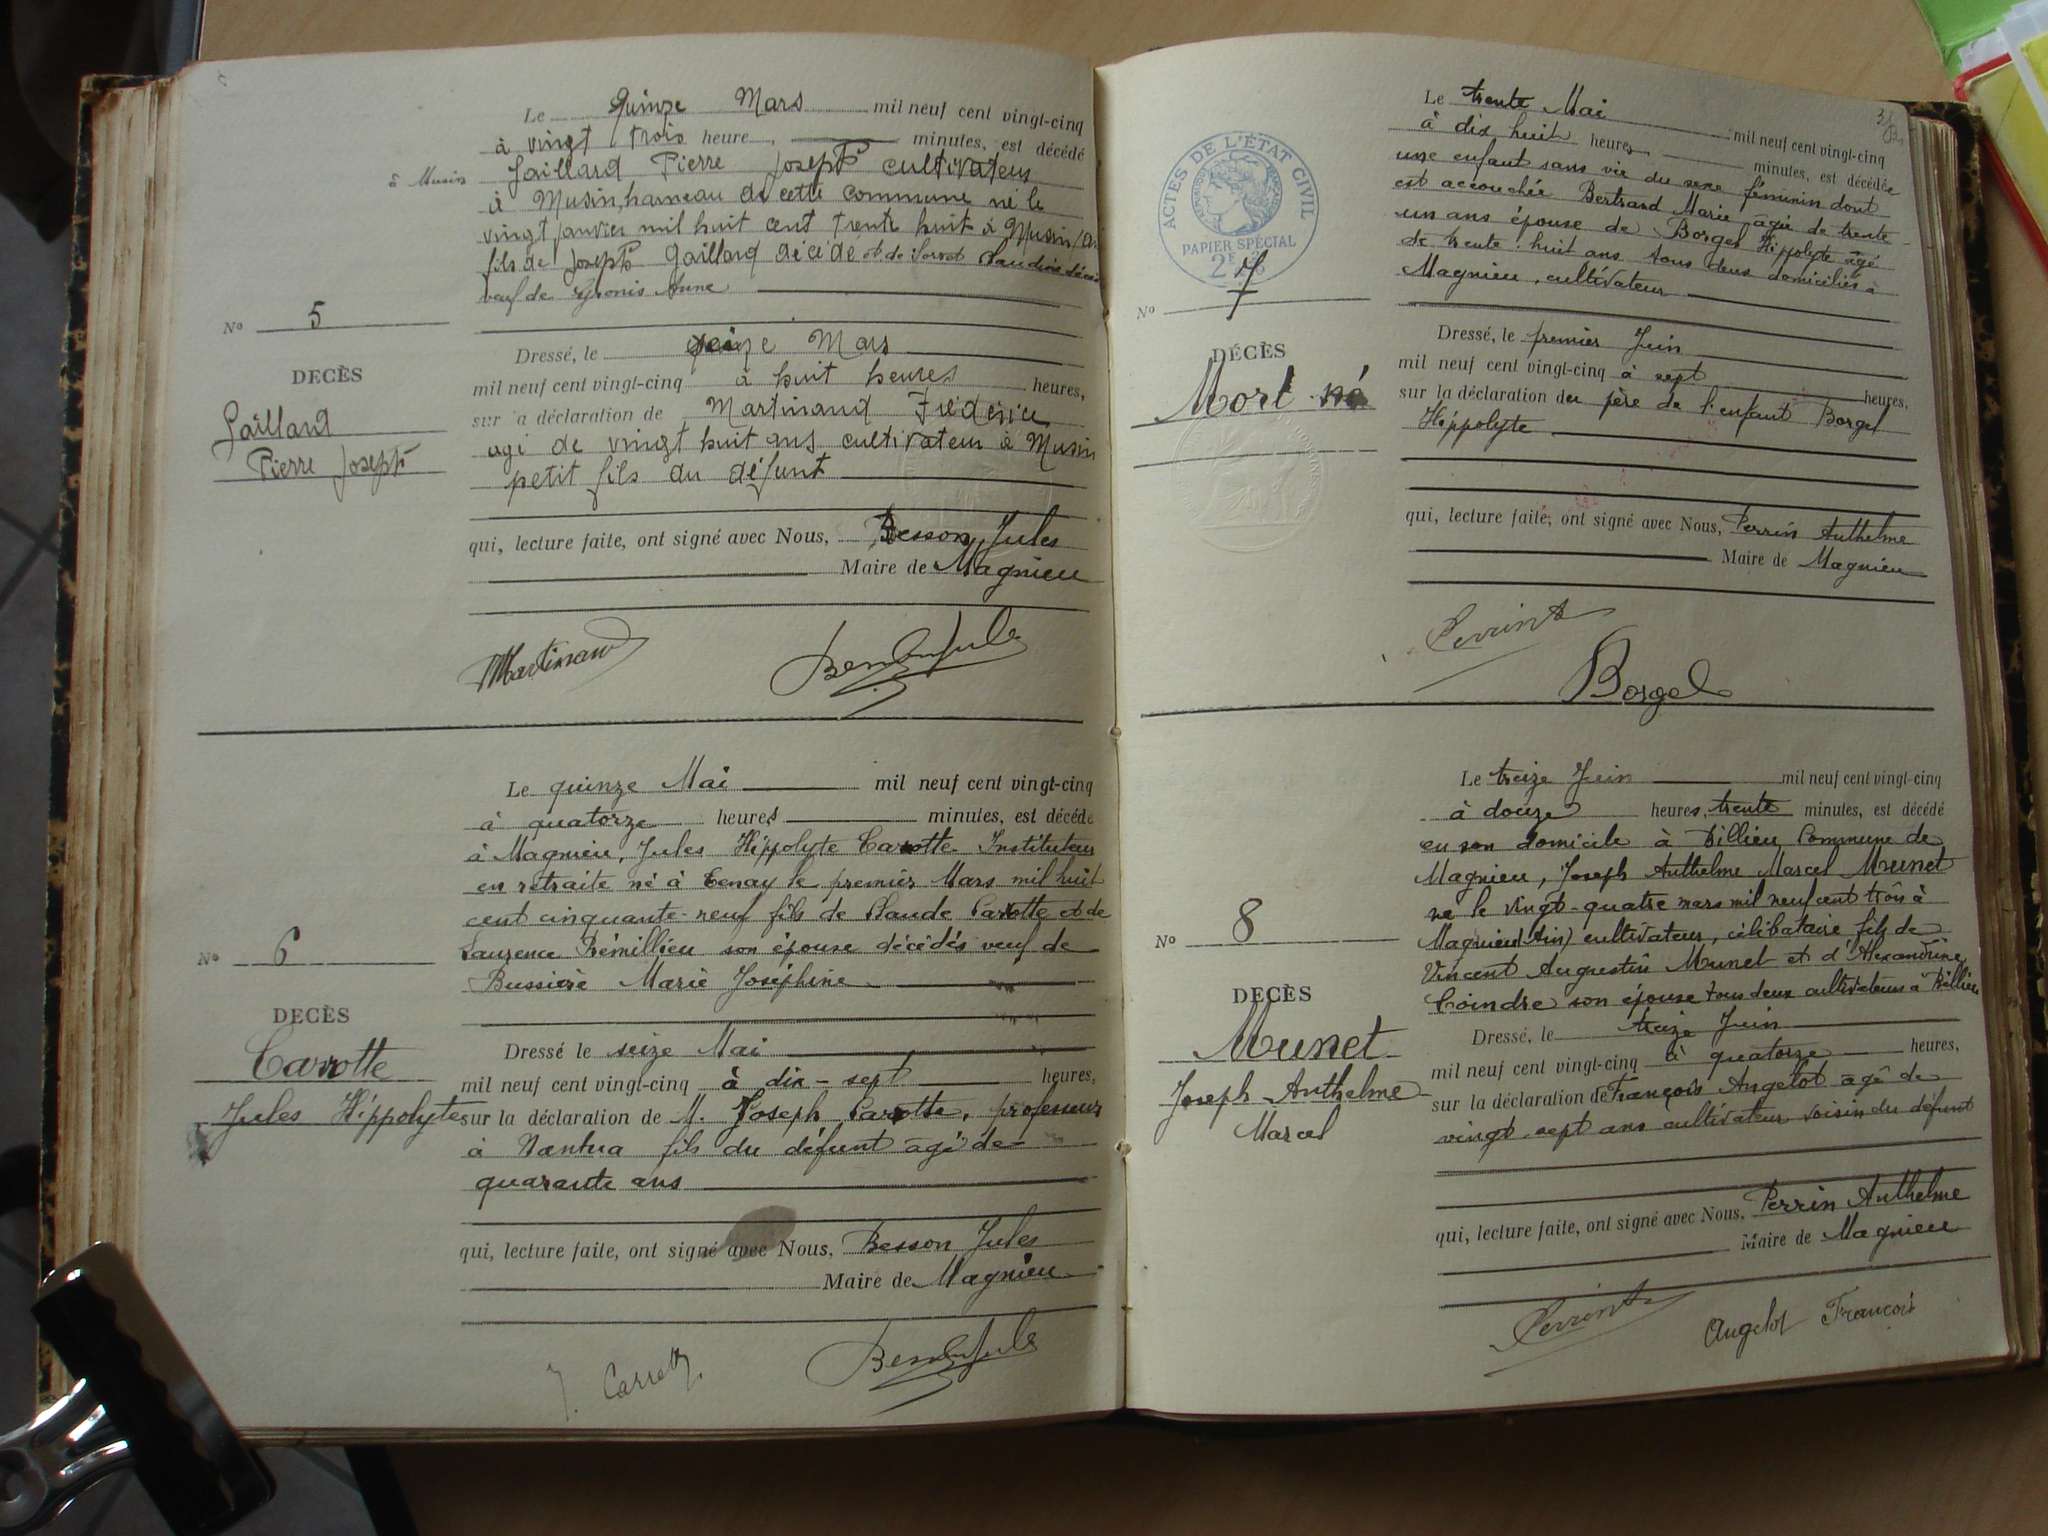 Le Quinze Mars mil neuf cent vingt-cinq
à vingt trois heure, minutes, est décédé
à Musin
Gaillard Pierre Joseph cultivateur
à Musin, hameau de cette commune né le
vingt janvier mil huit cent trente huit à Musin
fils de Joseph Gaillard décédé et de Claudine
veuf de Anne
Nº 5
DECÈS
Gaillard
Pierre Joseph
Dressé, le seize Mars
mil neuf cent vingt-cinq à huit heures heures,
sur a déclaration de Martinand Frédéric
agé de vingt huit ans cultivateur à Musin
petit fils du défunt
qui, lecture faite, ont signé avec Nous, Besson Jules
Maire de Magnieu
Martinand
Besson Jules
Le quinze Mai mil neuf cent vingt-cinq
à quatorze heures minutes, est décédé
à Magnieu, Jules Hippolyte Carrotte Instituteur
en retraite né à Tenay le premier Mars mil huit
cent cinquante-neuf fils de Claude Carrotte et de
Laurence Trémillieu son épouse décédés veuf de
Bussière Marie Joséphine
Nº 6
DECÈS
Carrotte
Jules Hippolyte
Dressé le seize Mai
mil neuf cent vingt-cinq à dix-sept heures,
sur la déclaration de M. Joseph Carrotte, professeur
à Nantua fils du défunt âgé de
quarante ans
qui, lecture faite, ont signé avec Nous, Besson Jules
Maire de Magnieu
J. Carrotte
Besson Jules
Le trente Mai mil neuf cent vingt-cinq
à dix huit heures, minutes, est décédée
une enfant sans vie du sexe féminin dont
est accouchée Bertrand Marie âgée de trente-
un ans épouse de Borgel Hippolyte âgé
de trente-huit ans tous deux domiciliés à
Magnieu, cultivateur
ACTES DE L'ÉTAT CIVIL
PAPIER SPÉCIAL
Nº 7
DÉCÈS
Mort né
Dressé, le premier Juin
mil neuf cent vingt-cinq à sept heures,
sur la déclaration du père de l'enfant Borgel
Hippolyte
qui, lecture faite, ont signé avec Nous, Perrin Anthelme
Maire de Magnieu
Perrin A
Borgel
Le treize Juin mil neuf cent vingt-cinq
à douze heures, trente minutes, est décédé
en son domicile à Billieu Commune de
Magnieu, Joseph Anthelme Marcel Munet
né le vingt-quatre mars mil neuf cent trois à
Magnieu (Ain) cultivateur, célibataire fils de
Vincent Augustin Munet et d'Alexandrine
Coindre son épouse tous deux cultivateurs à Billieu
Nº 8
DECÈS
Munet
Joseph Anthelme
Marcel
Dressé, le treize Juin
mil neuf cent vingt-cinq à quatorze heures,
sur la déclaration de François Angelot âgé de
vingt-sept ans cultivateur voisin du défunt
qui, lecture faite, ont signé avec Nous, Perrin Anthelme
Maire de Magnieu
Perrin A
Angelot François